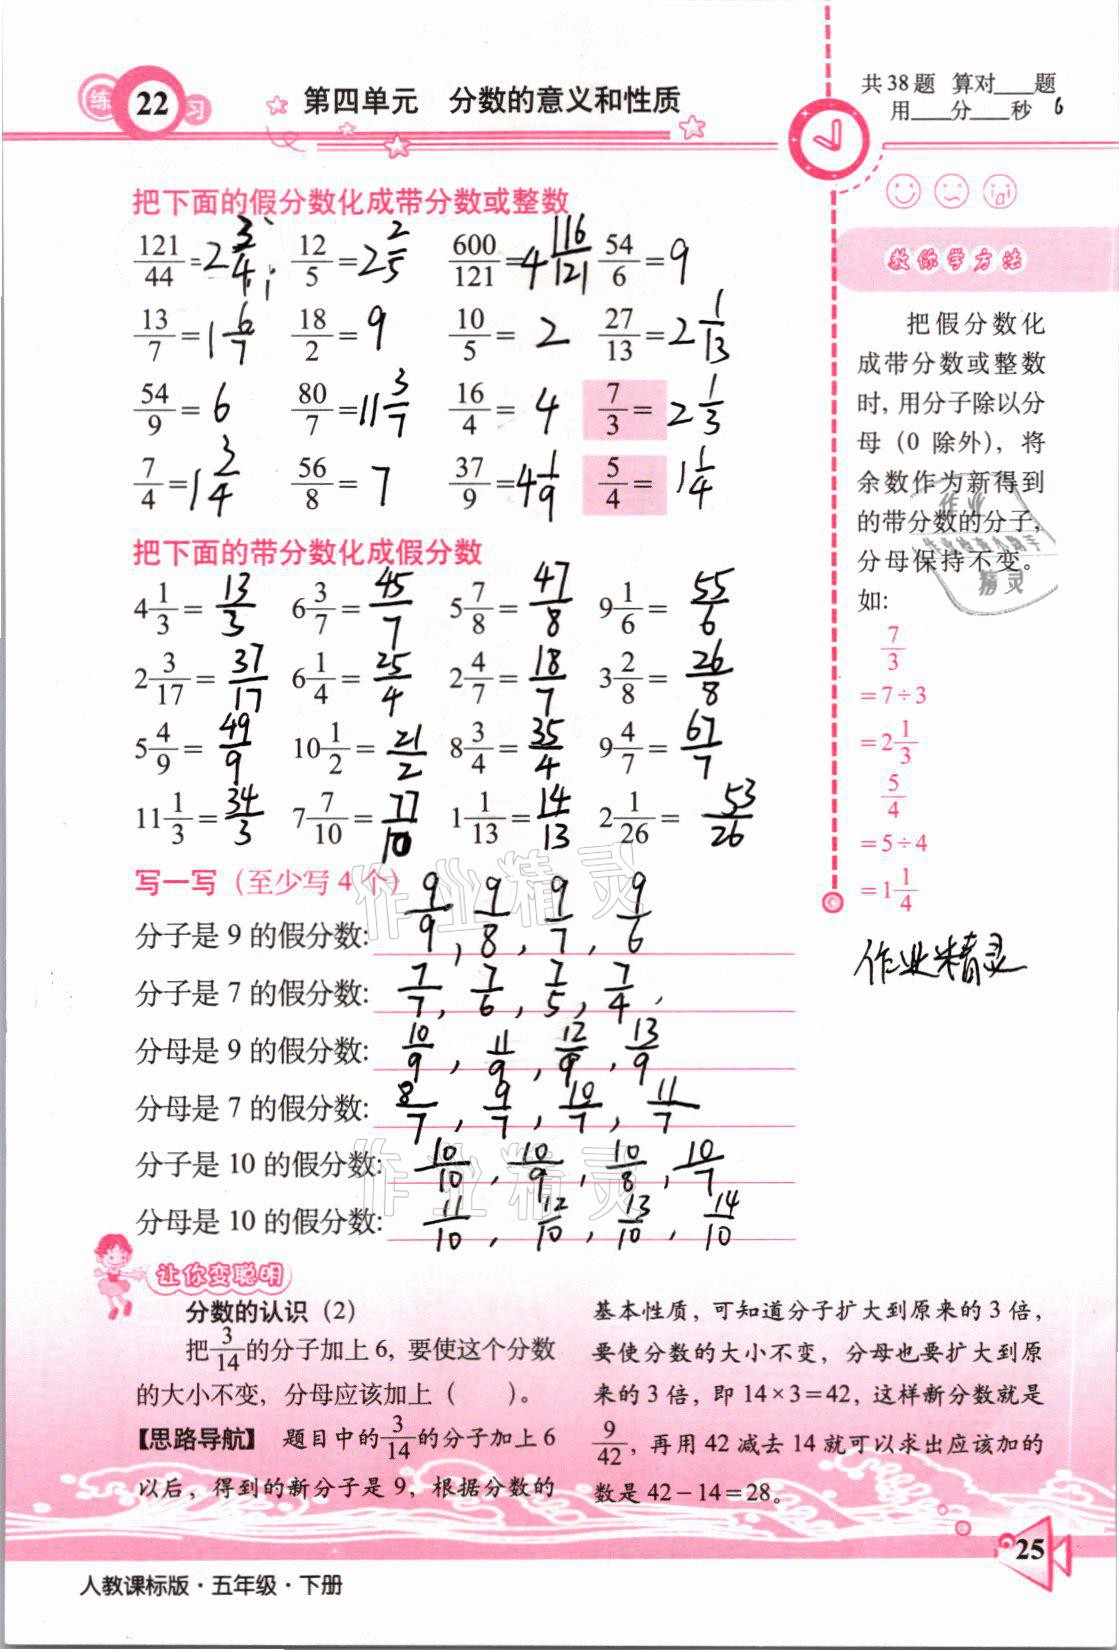 练 22 习
第四单元 分数的意义和性质
共38题 算对____题
用____分____秒 6
把下面的假分数化成带分数或整数
121/44=2 3/4 12/5=2 2/5 600/121=4 116/121 54/6=9
13/7=1 6/7 18/2=9 10/5=2 27/13=2 1/13
54/9=6 80/7=11 3/7 16/4=4 7/3=2 1/3
7/4=1 3/4 56/8=7 37/9=4 1/9 5/4=1 1/4
把下面的带分数化成假分数
4 1/3=13/3 6 3/7=45/7 5 7/8=47/8 9 1/6=55/6
2 3/17=37/17 6 1/4=25/4 2 4/7=18/7 3 2/8=26/8
5 4/9=49/9 10 1/2=21/2 8 3/4=35/4 9 4/7=67/7
11 1/3=34/3 7 7/10=77/10 1 1/13=14/13 2 1/26=53/26
写一写(至少写4个)
分子是9的假分数: 9/9, 9/8, 9/7, 9/6
分子是7的假分数: 7/7, 7/6, 7/5, 7/4,
分母是9的假分数: 10/9, 11/9, 12/9, 13/9
分母是7的假分数: 8/7, 9/7, 10/7, 11/7
分子是10的假分数: 10/10, 10/9, 10/8, 10/7
分母是10的假分数: 11/10, 12/10, 13/10, 14/10
教你学方法
把假分数化
成带分数或整数
时,用分子除以分
母(0除外),将
余数作为新得到
的带分数的分子,
分母保持不变。
如:
7/3
=7÷3
=2 1/3
5/4
=5÷4
=1 1/4
作业
作业检查小助手
精灵
作业精灵
作业精灵
作业精灵
让你变聪明
分数的认识(2)
把3/14的分子加上6,要使这个分数
的大小不变,分母应该加上( )。
【思路导航】 题目中的3/14的分子加上6
以后,得到的新分子是9,根据分数的
基本性质,可知道分子扩大到原来的3倍,
要使分数的大小不变,分母也要扩大到原
来的3倍,即14×3=42,这样新分数就是
9/42,再用42减去14就可以求出应该加的
数是42-14=28。
25
人教课标版·五年级·下册